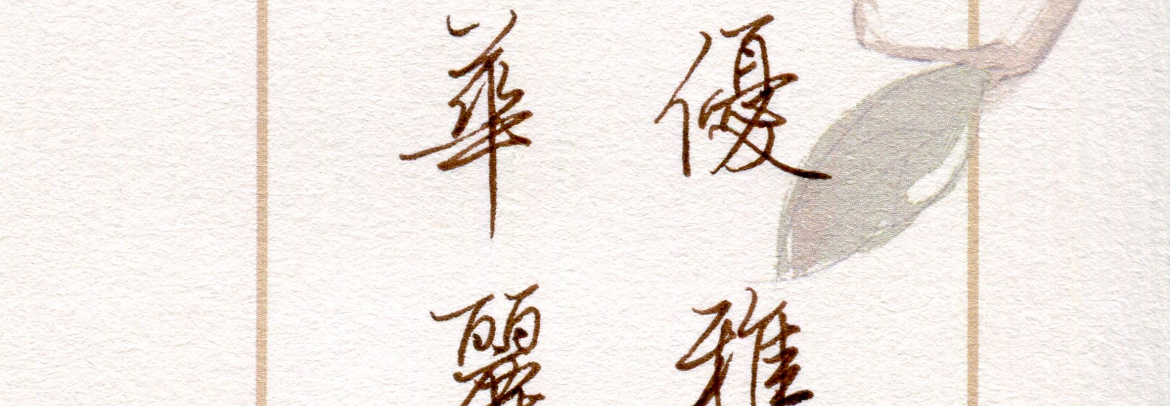 優雅
華麗